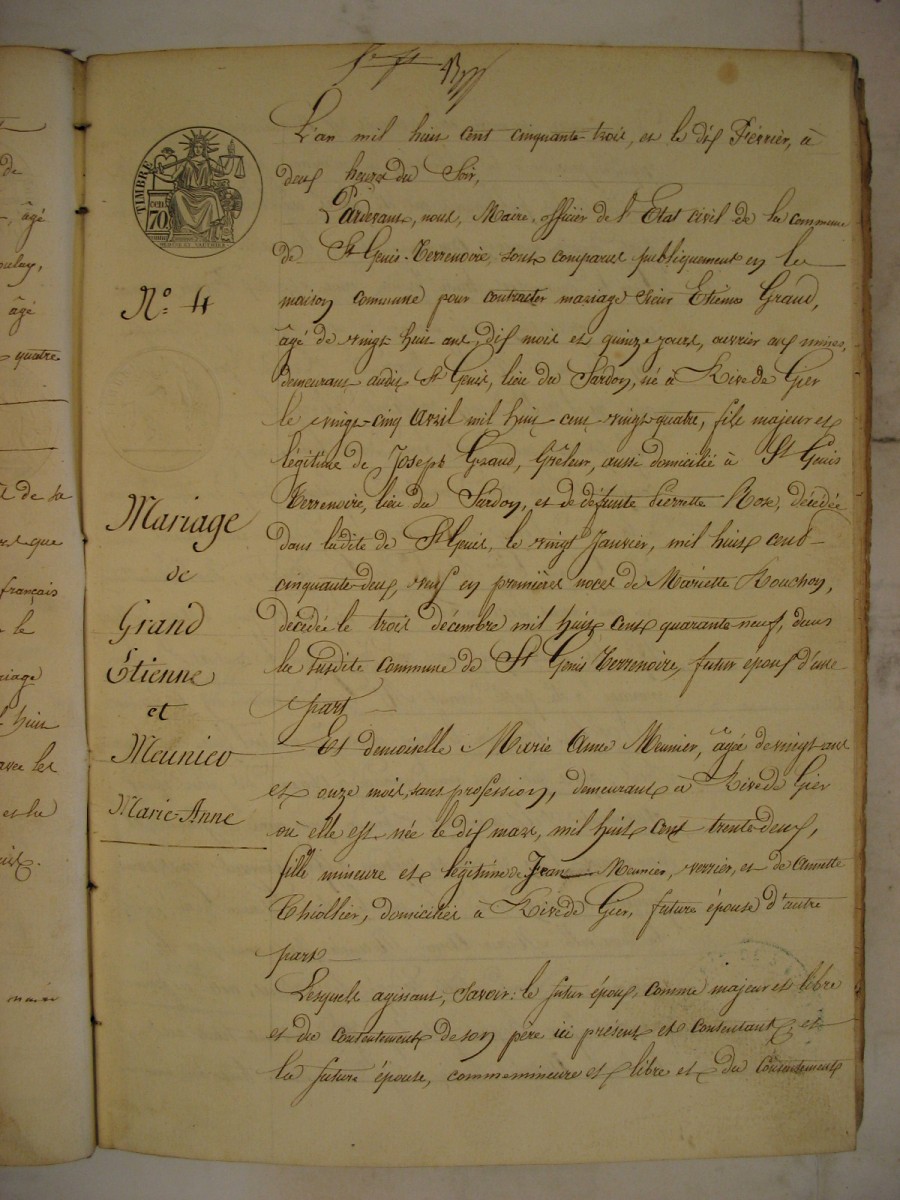 TIMBRE
cen 70
L'an mil huit cent cinquante-trois, et le dix Février, à
deux heures du Soir,
Pardevant, nous, Maire, officier de l'Etat civil de la commune
de St Genis-Terrenoire, sont comparus publiquement en la
maison commune pour contracter mariage Sieur Etienne Grand,
âgé de vingt huit ans, dix mois et quinze jours, ouvrier aux mines,
demeurant audit St Genis, lieu du Sardon, né à Rive de Gier
le vingt-cinq Avril mil huit cent vingt-quatre, fils majeur et
légitime de Joseph Grand, Gréleur, aussi domicilié à St Genis
Terrenoire, lieu du Sardon, et de défunte Pierrette Roze, décédée
dans ladite de St Genis, le vingt Janvier, mil huit cent
cinquante-deux, veuf en premières noces de Mariette Rouchon,
décédée le trois décembre mil huit cent quarante-neuf, dans
la susdite commune de St Genis Terrenoire, futur époux d'une
part
Et demoiselle Marie Anne Meunier, âgée de vingt ans
et onze mois, sans profession, demeurant à Rive de Gier
où elle est née le dix mars, mil huit cent trente-deux,
fille mineure et légitime de Jean Meunier, verrier, et de Annette
Thiollier, domiciliés à Rive de Gier, future épouse d'autre
part
Lesquels agissant, Savoir: le futur époux, comme majeur et libre
et du consentement de son père ici présent et consentant, et
la future épouse, comme mineure et libre et du consentement
No. 4
Mariage
de
Grand
Etienne
et
Meunier
Marie-Anne
de
âgé
âgé
quatre
de sa
que
français
le
riage
huit
avec les
et la